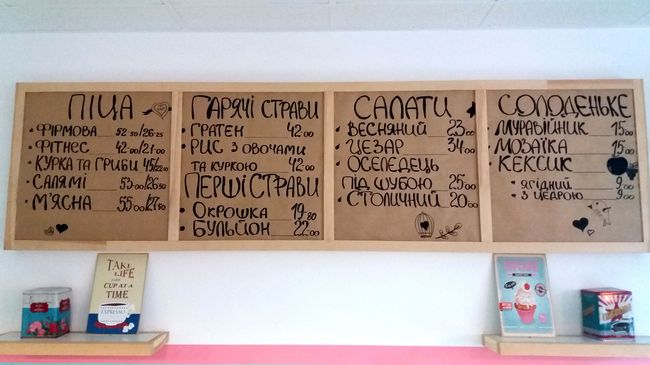 ПІЦА
• ФІРМОВА 52 50/26 25
• ФІТНЕС 42 00/21 00
• КУРКА ТА ГРИБИ
• САЛЯМІ 53 00/26 50
• М'ЯСНА 55 00/27 50
ГАРЯЧІ СТРАВИ
• ГРАТЕН 42 00
• РИС З ОВОЧАМИ
ТА КУРКОЮ 42 00
ПЕРШІ СТРАВИ
• ОКРОШКА 19 80
• БУЛЬЙОН 22 00
САЛАТИ
• ВЕСНЯНИЙ 23 00
• ЦЕЗАР 34 00
• ОСЕЛЕДЕЦЬ
ПІД ШУБОЮ 25 00
• СТОЛИЧНИЙ 20 00
СОЛОДЕНЬКЕ
• МУРАВІЙНИК 15 00
• МОЗАЇКА 15 00
• КЕКСИК
• ЯГІДНИЙ 9 00
• З ЦЕДРОЮ 9 00
TAKE
LIFE
CUP AT A
TIME
ESPRESSO